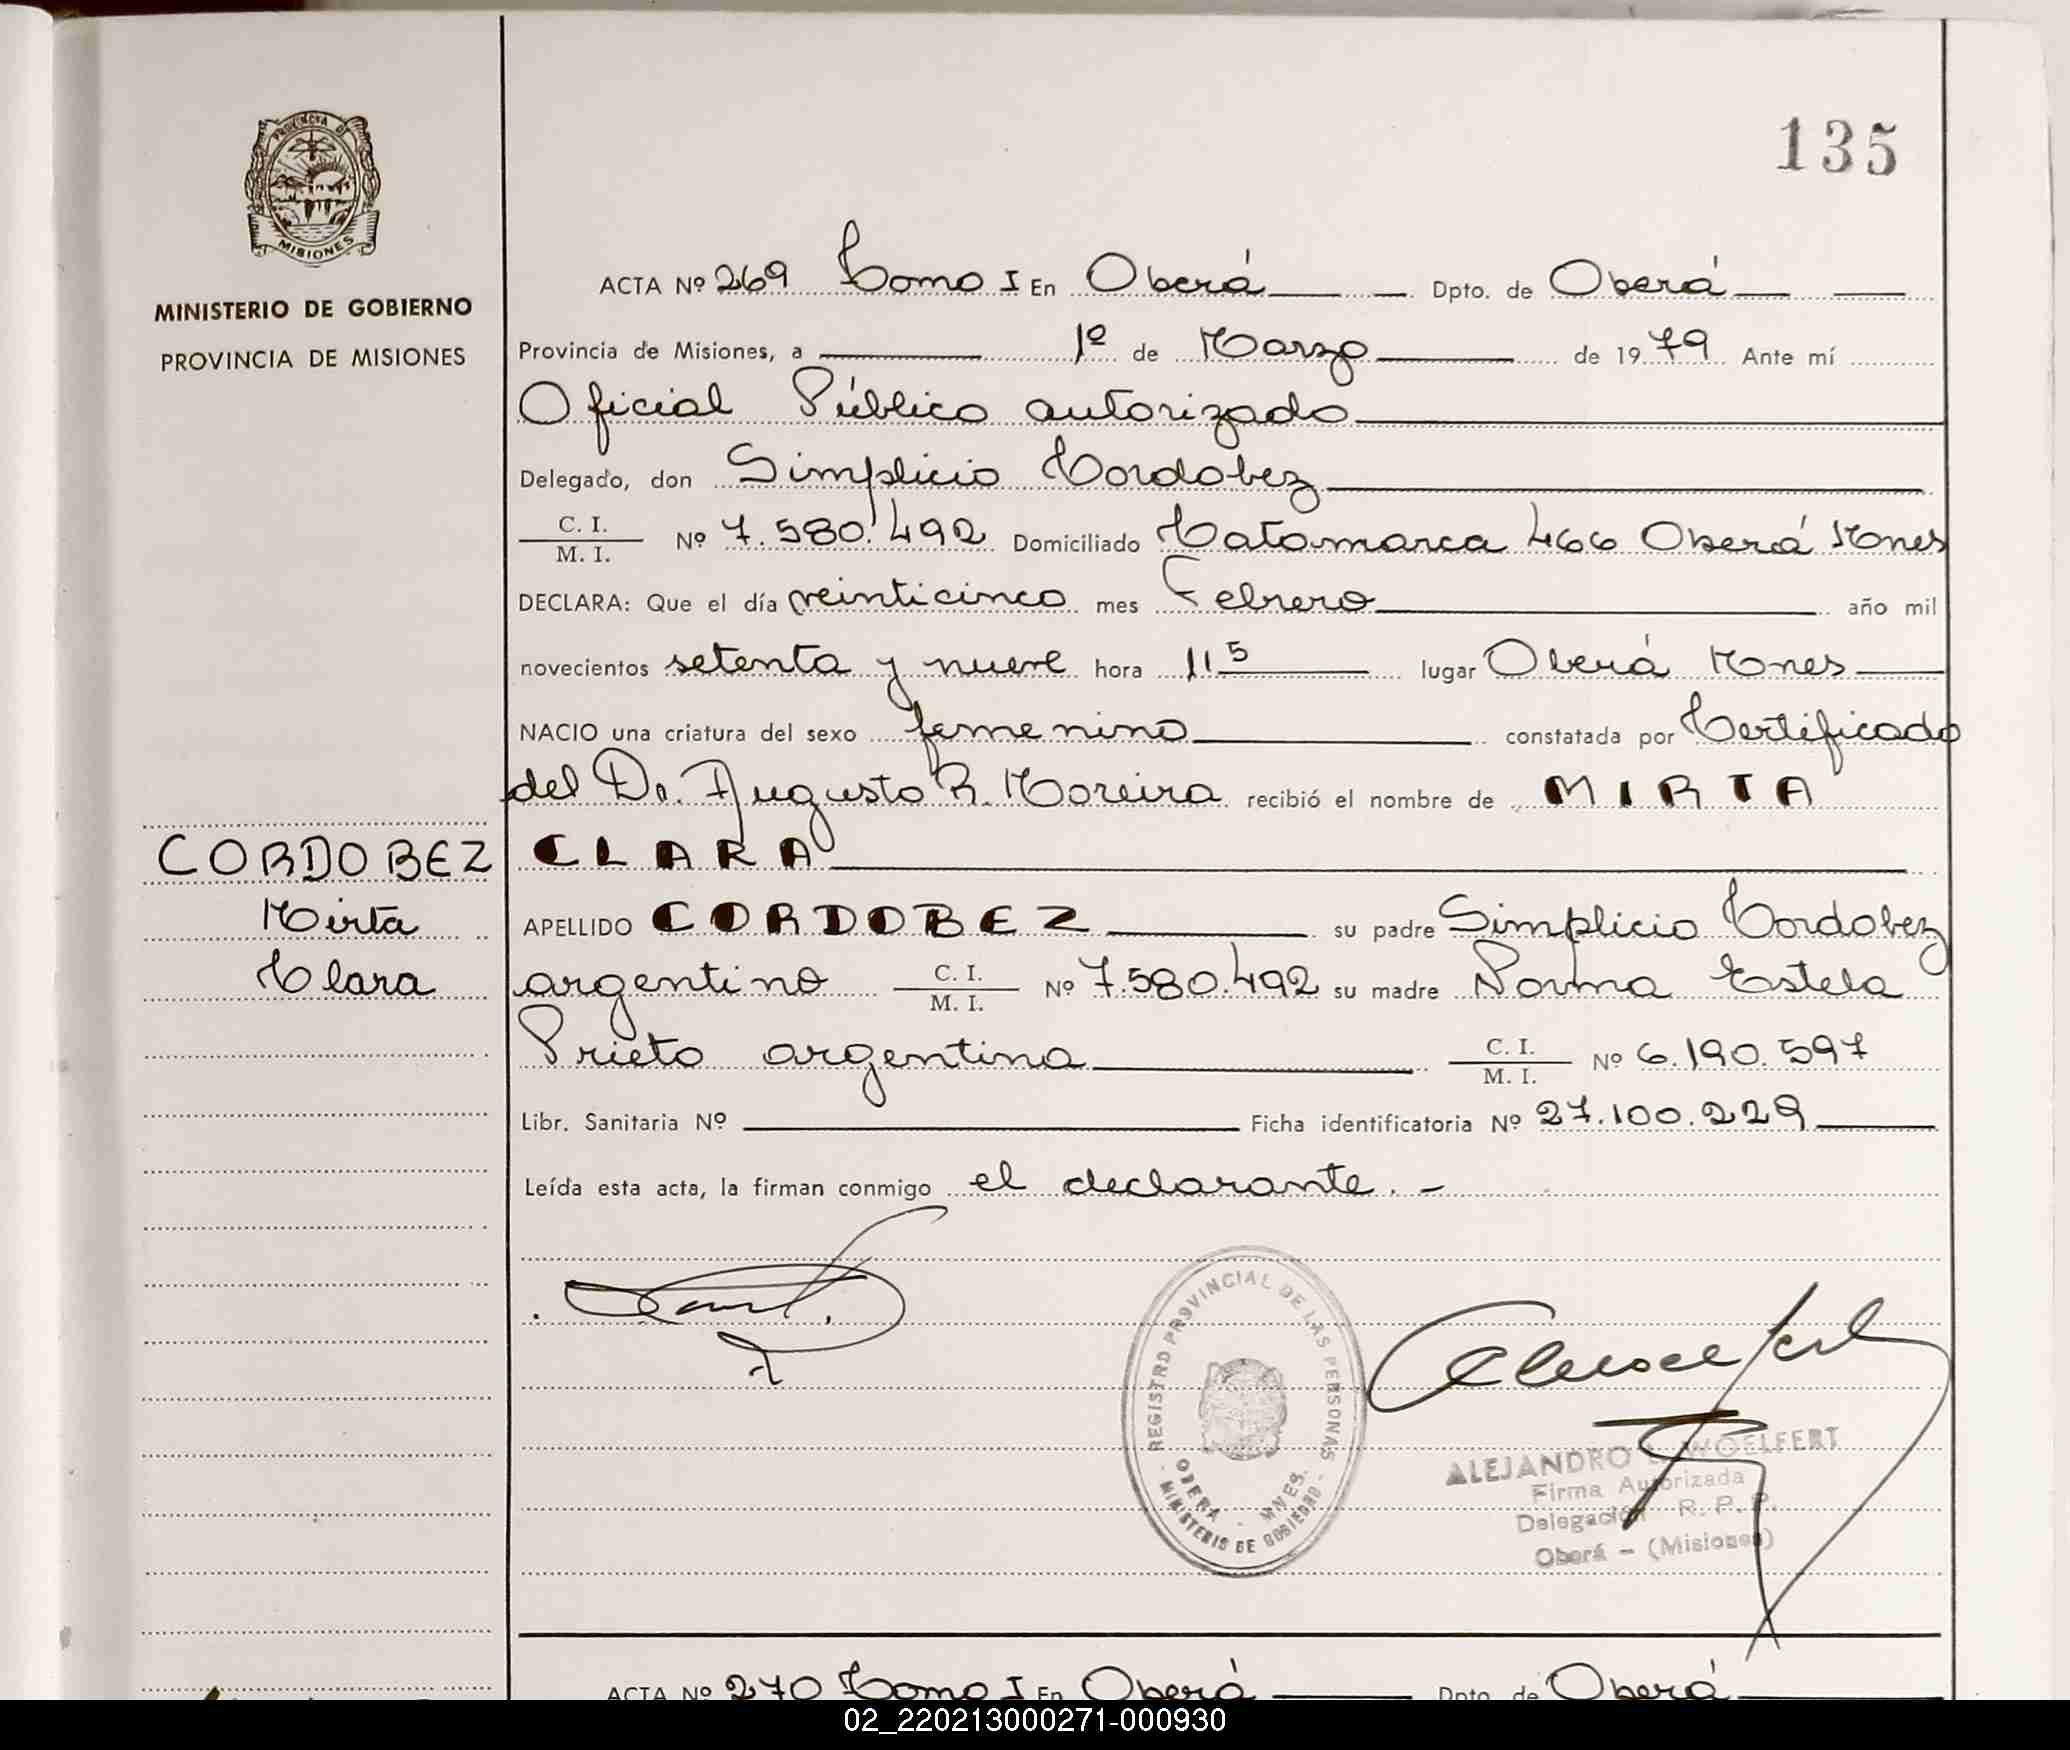 135
PROVINCIA DE
MISIONES
MINISTERIO DE GOBIERNO
PROVINCIA DE MISIONES
ACTA Nº 269 Tomo I En Oberá Dpto. de Oberá
Provincia de Misiones, a 1º de Marzo de 1979 Ante mí
Oficial Público autorizado
Delegado, don Simplicio Cordobez
C. I. / M. I. Nº 7.580.492 Domiciliado Catamarca 466 Oberá Mnes
DECLARA: Que el día veinticinco mes Febrero año mil
novecientos setenta y nueve hora 11 5 lugar Oberá Mnes
NACIO una criatura del sexo femenino constatada por Certificado
del Dr. Augusto R. Moreira recibió el nombre de MIRTA
CLARA
CORDOBEZ
Mirta
Clara
APELLIDO CORDOBEZ su padre Simplicio Cordobez
argentino C. I. / M. I. Nº 7.580.492 su madre Norma Estela
Prieto argentina C. I. / M. I. Nº 6.190.597
Libr. Sanitaria Nº Ficha identificatoria Nº 27.100.229
Leída esta acta, la firman conmigo el declarante. -
REGISTRO PROVINCIAL DE LAS PERSONAS
OBERA - MNES.
MINISTERIO DE GOBIERNO
ALEJANDRO WOELFERT
Firma Autorizada
Delegación R. P. P.
Oberá - (Misiones)
ACTA Nº 270 Tomo I En Oberá Dpto. de Oberá
02_220213000271-000930